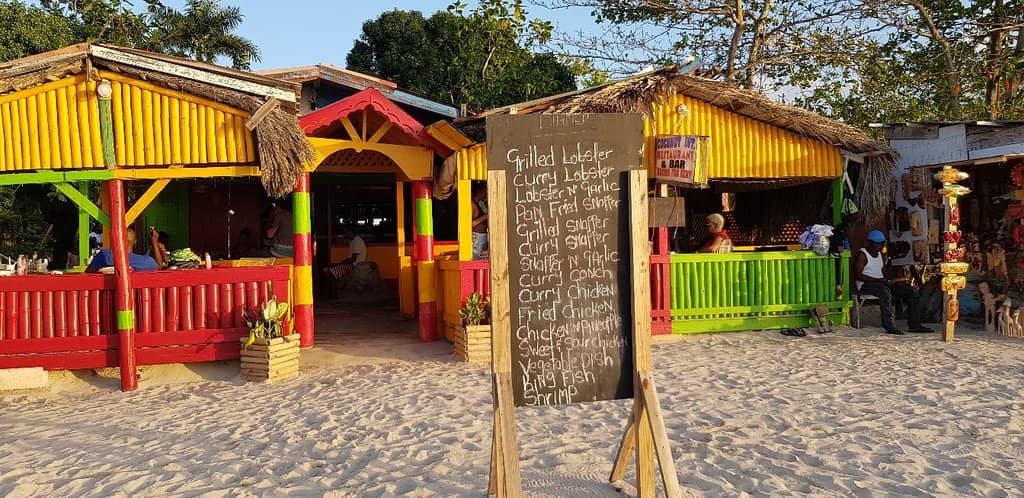 Grilled Lobster
Curry Lobster
Lobster N Garlic
Pan Fried Snapper
Grilled Snapper
Curry Snapper
Snapper N garlic
Curry Conch
Curry Chicken
Fried Chicken
Chicken N Pineapple
Sweet n Sour Chicken
Vegetable Dish
King Fish
Shrimp
COCONUT INT.
RESTAURANT
& BAR
COCONUT INT